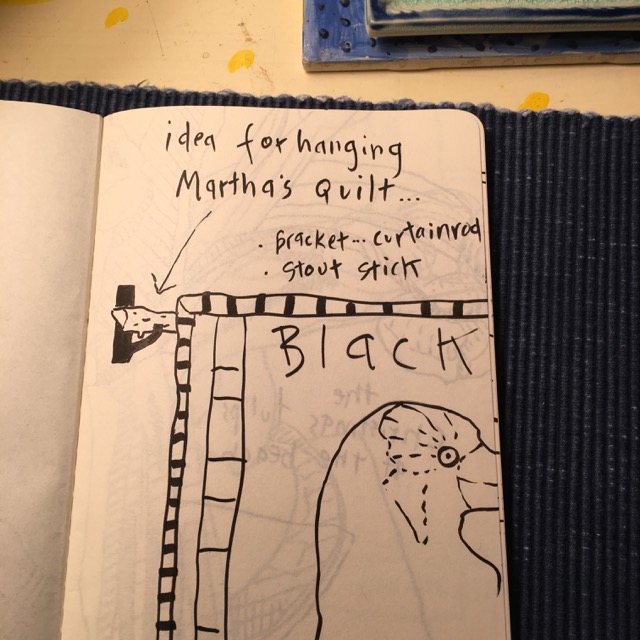 idea for hanging
Martha's Quilt...
. Bracket... curtainrod
. Stout stick
BlacK
the